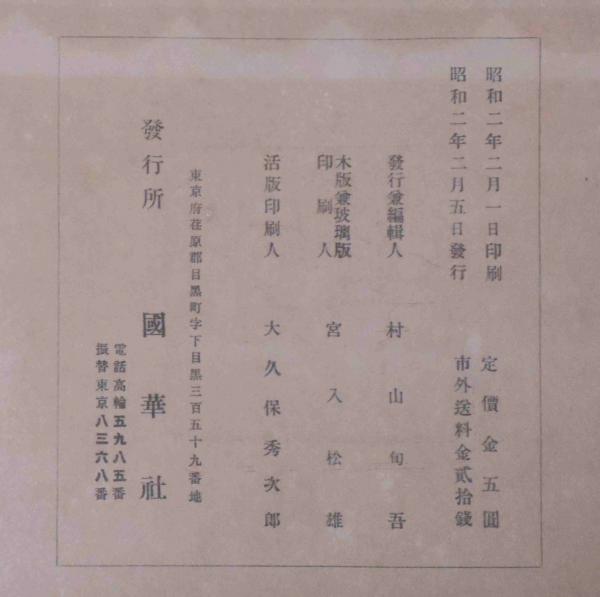 昭和二年二月一日印刷
昭和二年二月五日發行
定價金五圓
市外送料金貳拾錢
發行兼編輯人 村山旬吾
木版兼玻璃版印刷人 宮入松雄
活版印刷人 大久保秀次郎
東京府荏原郡目黑町字下目黑三百五十九番地
發行所 國華社
電話高輪五九八五番
振替東京八三六八番